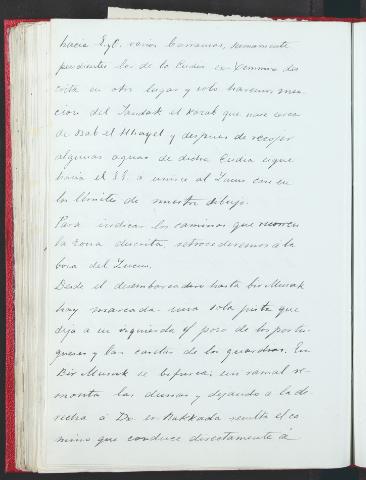 hacia S. y E. varios barrancos, sumamente
pendientes los de la Cudia des
crita en otro lugar y solo haremos men
cion del el Karab que nace cerca
de Bab el Khayel y despues de recojer
algunas aguas de dicha Cudia sigue
hacia el S.E. a unirse al Lucus casi en
los límites de nuestro dibujo.
Para indicar los caminos que recorren
la zona descrita, retrocederemos a la
boca del Lucus.
Desde el desembarcadero hasta bir Murak
hay marcada una sola pista que
deja a su izquierda el pozo de los portu
gueses y las casetas de los guardias. En
Bir Murak se bifurca; un ramal re-
monta las dunas y dejando a la de-
recha á Dr. er Rakkada resulta el ca
mino que conduce directamente á